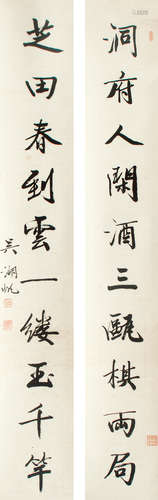 洞府人閑酒三甌棋兩局
芝田春到雲一縷玉千竿
吴湖帆